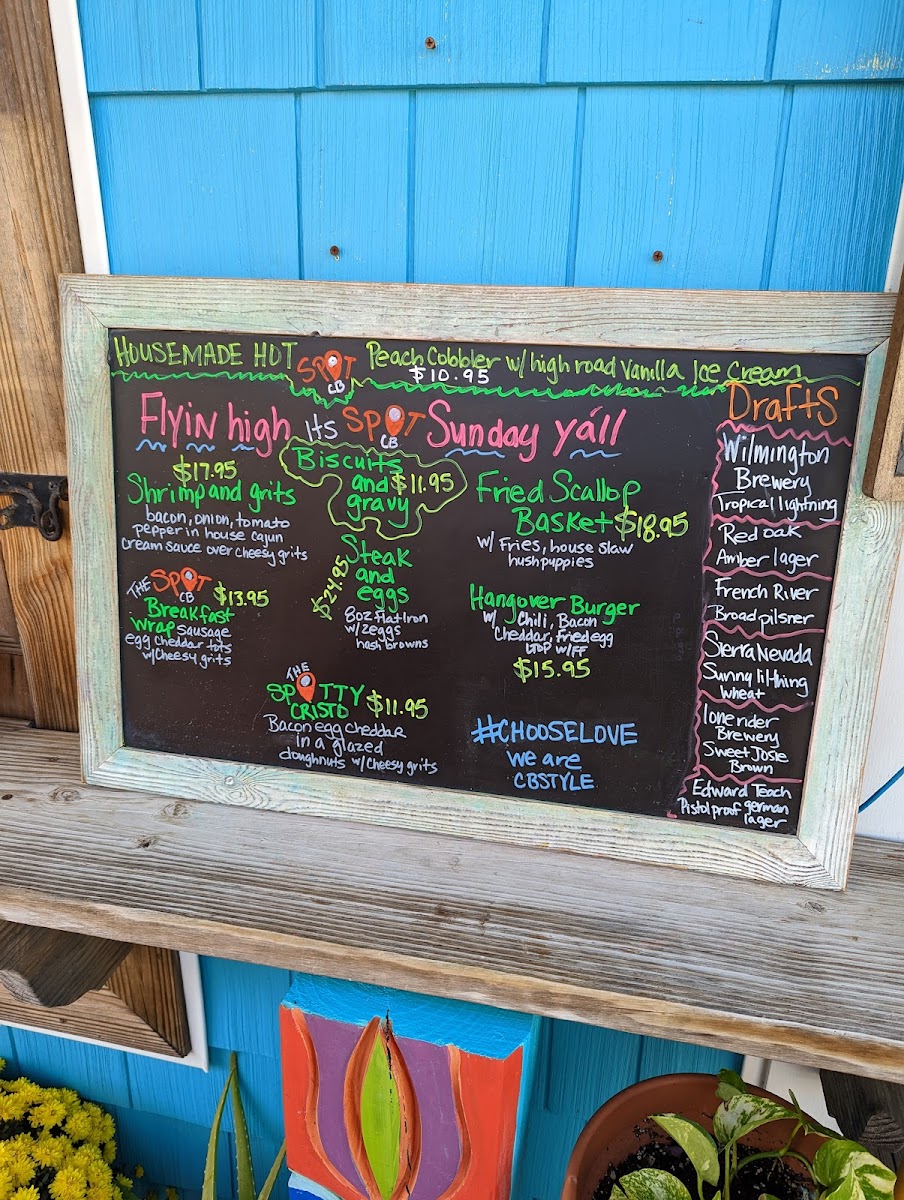 HOUSEMADE HOT SPOT CB Peach Cobbler w/high road Vanilla Ice Cream
$10.95
Flyin high its SPOT CB Sunday yáll
$17.95
Shrimp and grits
bacon, onion, tomato
pepper in house cajun
cream sauce over cheesy grits
THE SPOT CB $13.95
Breakfast
wrap sausage
egg cheddar tots
w/cheesy grits
Biscuits
and $11.95
gravy
$24.95 Steak
and
eggs
8oz flatIron
w/2eggs
hash browns
THE
SPOTTY $11.95
CRISTO
Bacon egg cheddar
in a glazed
doughnuts w/cheesy grits
Fried Scallop
Basket $18.95
w/ fries, house slaw
hushpuppies
Hangover Burger
w/ Chili, Bacon
Cheddar, Fried egg
LTOP w/FF
$15.95
#CHOOSELOVE
we are
CBSTYLE
Drafts
Wilmington
Brewery
Tropical lightning
Red oak
Amber lager
French River
Broad pilsner
Sierra Nevada
Sunny lil thing
wheat
Tone nder
Brewery
Sweet Josie
Brown
Edward Teach
Pistol proof german
lager